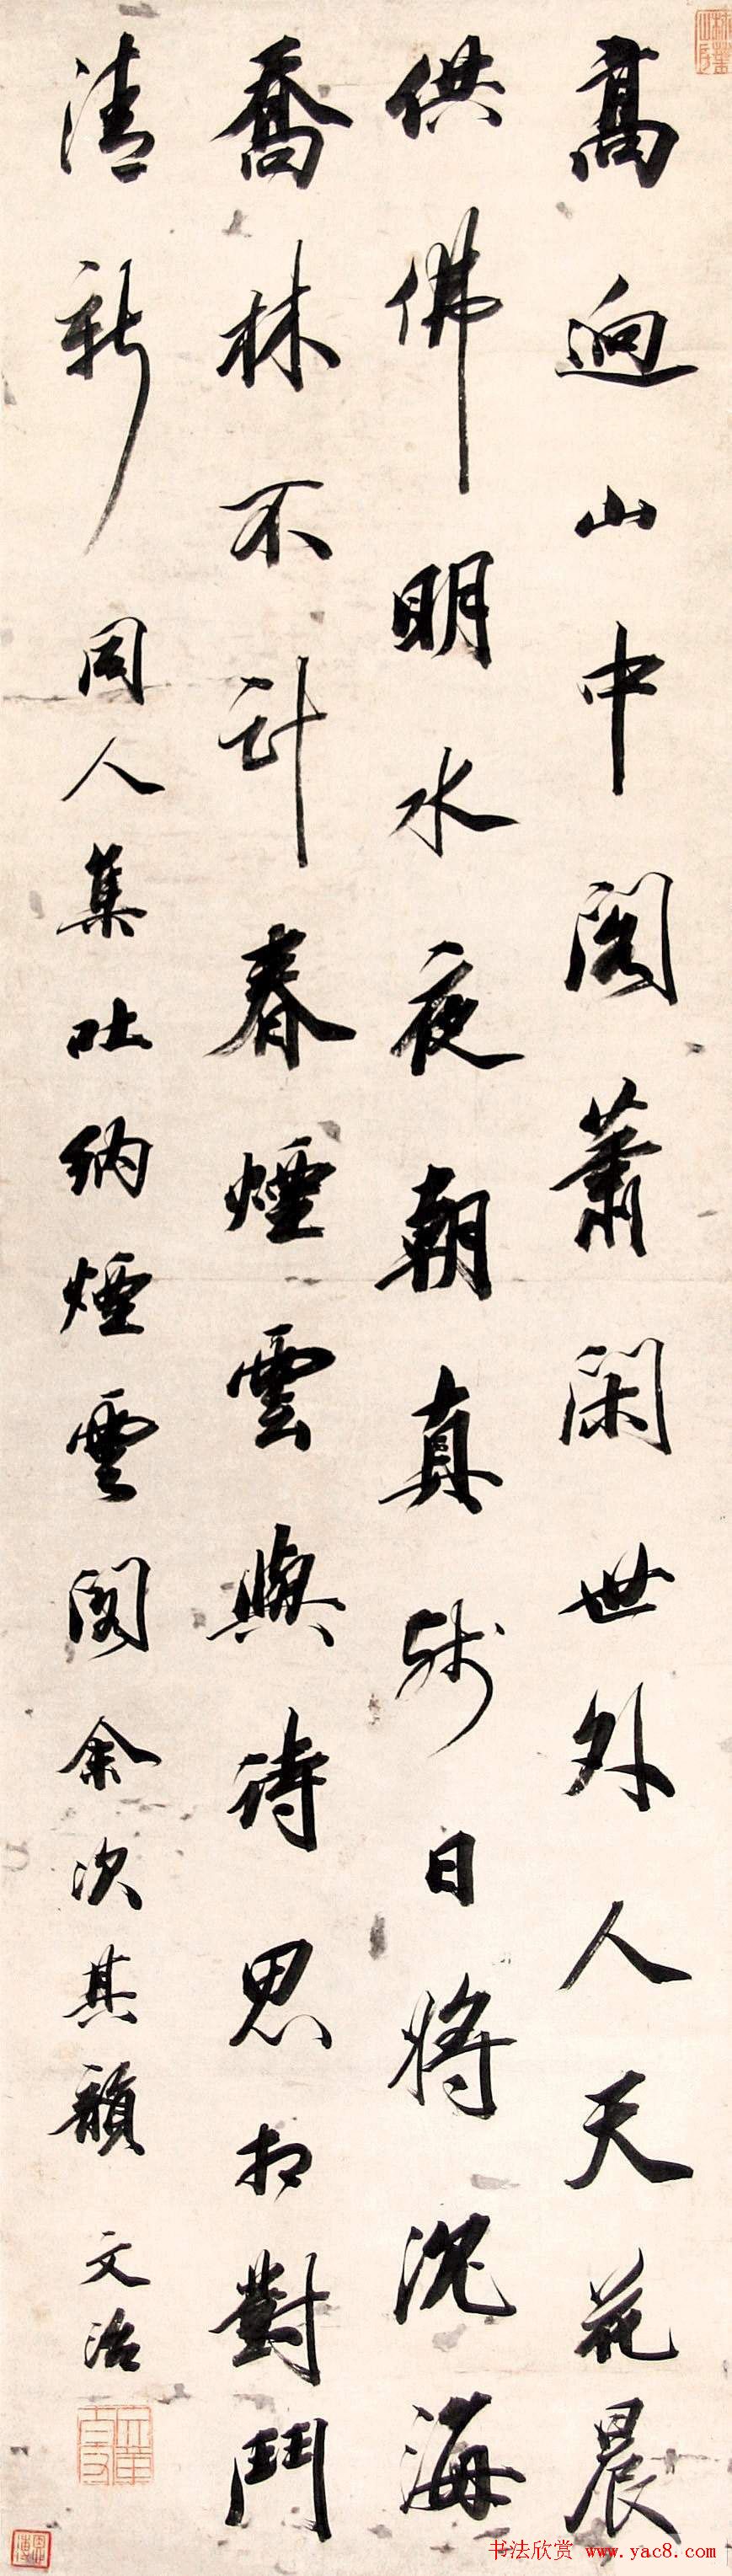 高迥山中閣蕭閑世外人天花晨
供佛明水夜朝真殘日將沉海
喬林不計春煙雲與詩思相對鬥
清新 同人集吐納煙雲閣余次其韻 文治
书法欣赏 www.yac8.com